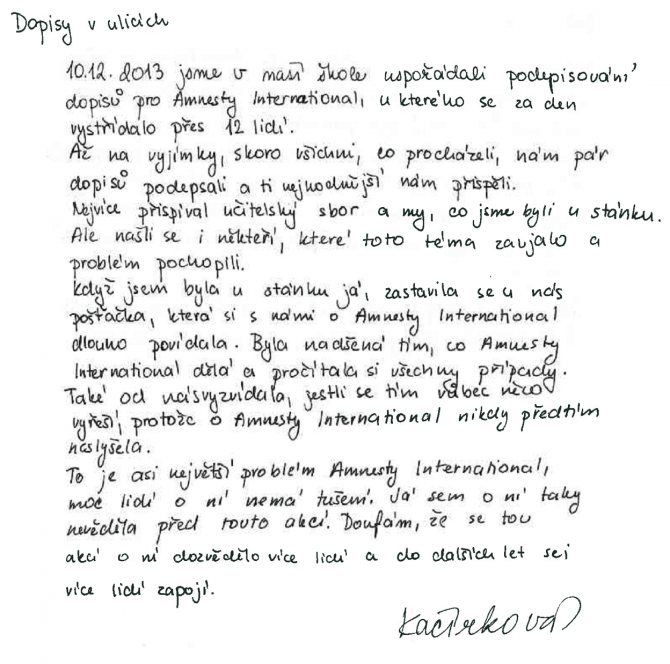 Dopisy v ulicích
10.12. 2013 jsme v naší škole uspořádali podepisování
dopisů pro Amnesty International, u kterého se za den
vystřídalo přes 12 lidí.
Až na vyjímky, skoro všichni, co procházeli, nám pár
dopisů podepsali a ti nejhodnější nám přispěli.
Nejvíce přispíval učitelský sbor a my, co jsme byli u stánku.
Ale našli se i někteří, které toto téma zaujalo a
problém pochopili.
Když jsem byla u stánku já, zastavila se u nás
pošťačka, která si s námi o Amnesty International
dlouho povídala. Byla nadšená tím, co Amnesty
International dělá a pročítala si všechny případy.
Také od nás vyzvídala, jestli se tím vůbec něco
vyřeší, protože o Amnesty International nikdy předtím
neslyšela.
To je asi největší problém Amnesty International,
moc lidí o ní nemá tušení. Já sem o ní taky
nevěděla před touto akcí. Doufám, že se tou
akcí o ní dozvědělo více lidí a do dalších let sei
více lidí zapojí.
Kačírková